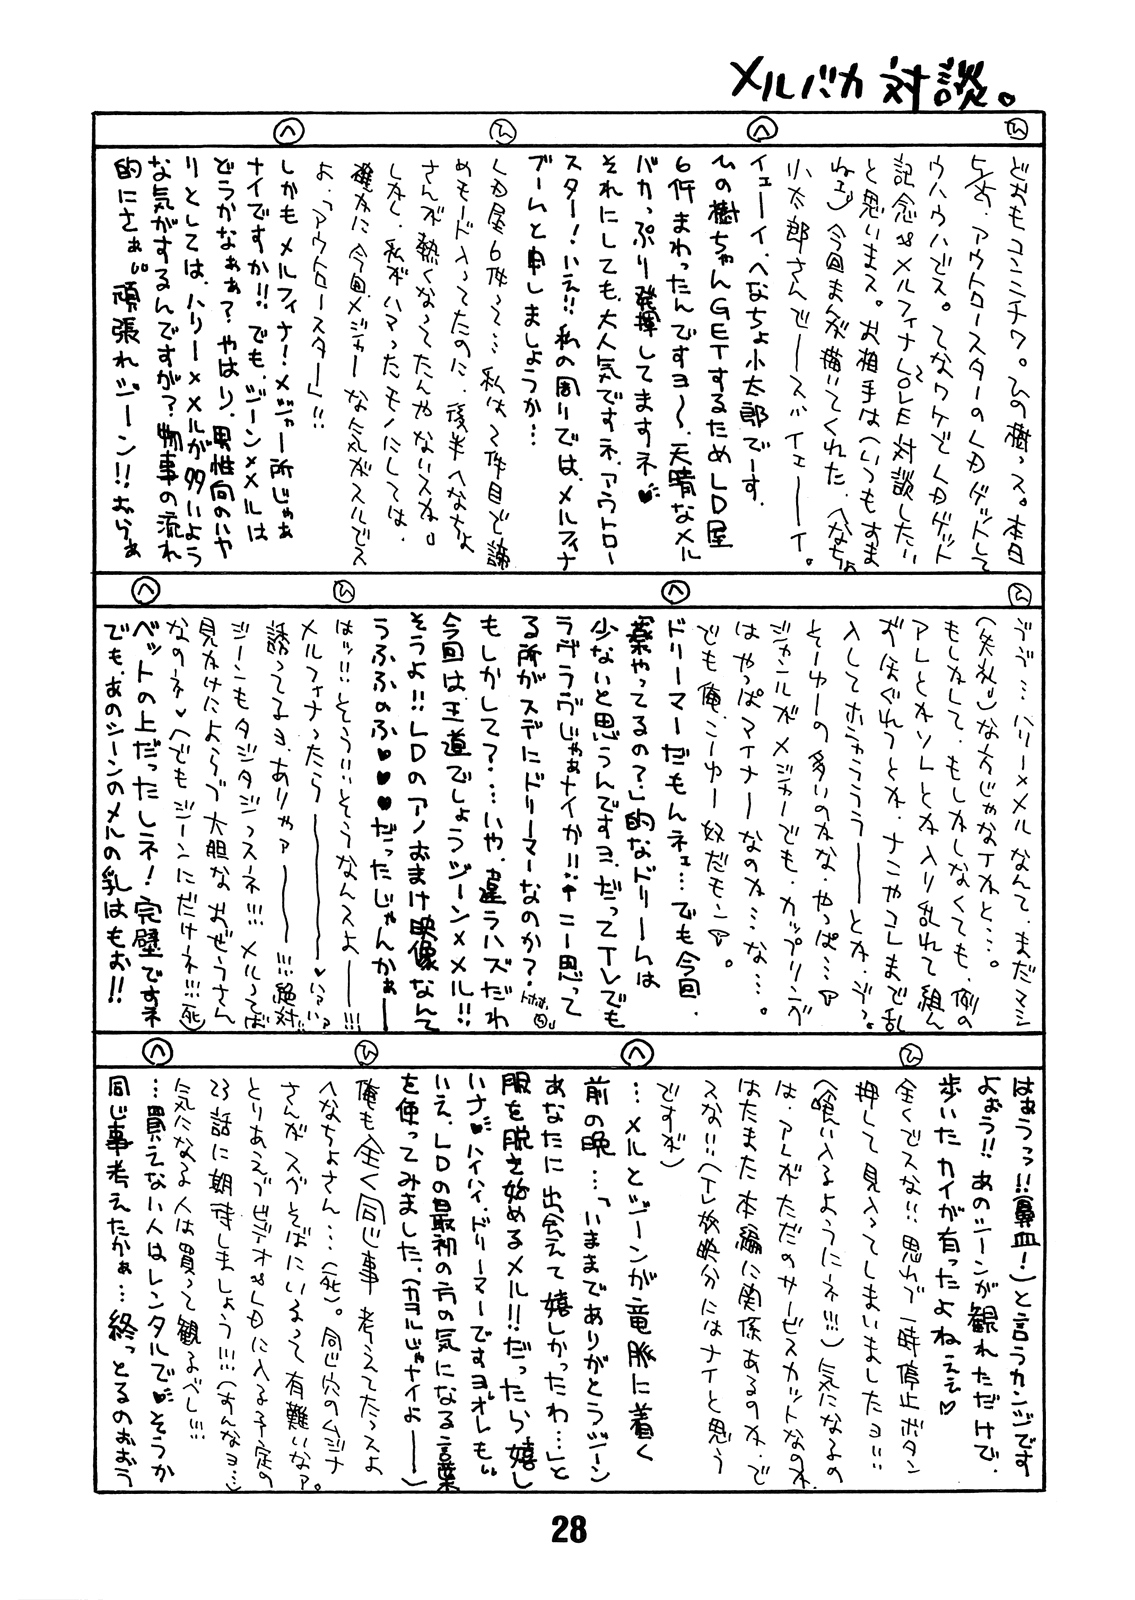 メルバカ対談。
ひ
どおもコンニチワ。ひの樹っス。本日
5/25、アウトロースターのLDゲットして
ウハウハでス。てなワケでLDゲット
記念&メルフィナLOVE対談したい
と思いまス。お相手は(いつもすま
ねェ)今回まんが描いてくれた、へなちょ
小太郎さんでーースパイェーーイ。
へ
イェーイ、へなちょ小太郎でーす。
ひの樹ちゃんGETするためLD屋
6件まわったんですヨ〜、天晴なメル
バカっぷり発揮してますネ♥
それにしても、大人気ですネ、アウトロー
スター!いえ!!私の周りでは、メルフィナ
ブームと申しましょうか…
ひ
LD屋6件って…私は2件目で諦
めモード入ってたのに、後半へなちょ
さんが熱くなってたんやないスか。
しかし、私がハマったモノにしては、
確かに今回メジャーな気がスルでス
よ、「アウトロースター」!!
へ
しかもメルフィナ!メジャー所じゃぁ
ナイですか!!でも、ジーン×メルは
どうかなぁぁ?やはり、男性向のノヤ
リとしては、ハリー×メルが多いよう
な気がするんですが?物事の流れ
的にさぁ!!頑張れジーン!!おらぁ
ひ
うう…ハリー×メルなんて、まだマシ
(失礼)な方じゃなイかと…。
もしかして、もしかしなくても、例の
アレとかソレとか入り乱れて組ん
ずほぐれつとか、ナニやコレまで乱
入してホニャララーーとか、ぞっ。
そーゆーの多いのかな、やっぱ…。
ジャンルがメジャーでも、カップリング
はやっぱマイナーなのか…な…。
でも俺、こーゆー奴だモン。
へ
ドリーマーだもんネェ…でも今回、
「薬やってるの?」的なドリームは
少ないと思うんですヨ、だってTVでも
ラヴラヴじゃぁナイか!!←こー思って
る所がスデにドリーマーなのか?
もしかして?…いや、違うハズだわ
今回は王道でしょうジーン×メル!!
そうよ!!LDのアノおまけ映像なんて
うふふのふ♥♥♥だったじゃんかぁー
ひ
はッ!!そう!!そうなんスよーー!!!
メルフィナったらーーーーー♥いつ?!い?
誘ってるヨ、ありゃァーーー!!!絶対!!
ジーンもタジタジっスネ!!!メルってば
見かけによらず大胆なおぜうさん
なのネ♥(でもジーンにだけネ!!!死)
へ
ベットの上だったしネ!完璧ですネ
でも、あのシーンのメルの乳はもぉ!!
はぁうっっ!!(鼻血!)と言うカンジです
よぉう!!あのシーンが観れただけで、
歩いたカイが有ったよねぇぇ♡
ひ
全くでスな!!思わず一時停止ボタン
押して見入ってしまいましたヨ!!
(喰い入るようにネ!!!)気になるの
は、アレがただのサービスカットなのか、
はたまた本編に関係あるのか、で
スな!!(TV放映分にはナイと思う
ですが)
へ
…メルとジーンが竜脈に着く
前の晩…「いままでありがとうジーン
あなたに出会えて嬉しかったわ…」と
服を脱ぎ始めるメル!!だったら嬉し
いナ♥ハイハイ、ドリーマーですヨオレも!!
いえ、LDの最初の方の気になる言葉
を使ってみました。(カヨルじゃナイよーー)
ひ
俺も全く同じ事考えてたっスよ
へなちょさん…(死)。同じ穴のムジナ
さんがスグそばにいるって有難いなァ。
とりあえずビデオ&LDに入る予定の
23話に期待しましょう!!!(すんなヨ…)
気になる人は買って観るべし!!!
へ
…買えない人はレンタルで♥そうか
同じ事考えたかぁ…終っとるのおおう
28